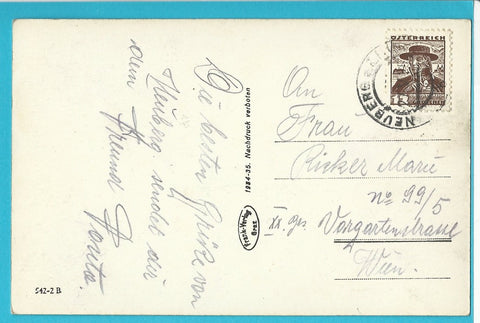 Die besten Grüße von
Neuberg sendet dir
dein Freund
1934-35. Nachdruck verboten
Frank-Verlag
Graz
542-2 B
ÖSTERREICH
NEUBERG
An
Frau
Ricker Marie
No 99/5
XX. Bez Vorgartenstrasse
Wien.